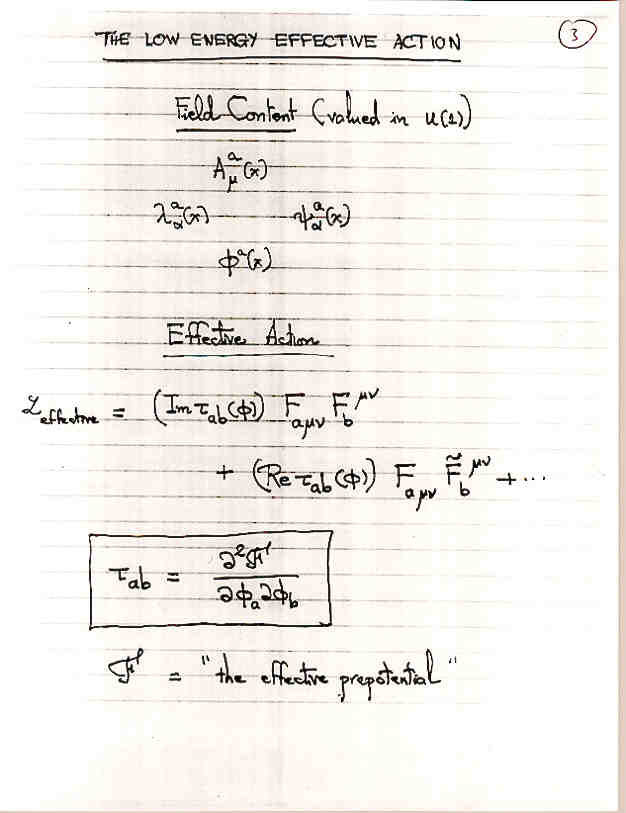 THE LOW ENERGY EFFECTIVE ACTION
3
Field Content (valued in u(1))
A^a_μ(x)
λ^a_α(x) ψ^a_α(x)
ϕ^a(x)
Effective Action
ℒ_effective = (Im τ_ab(ϕ)) F_aμν F_b^μν
+ (Re τ_ab(ϕ)) F_aμν F̃_b^μν + ...
τ_ab = ∂²ℱ / ∂ϕ_a ∂ϕ_b
ℱ = "the effective prepotential"